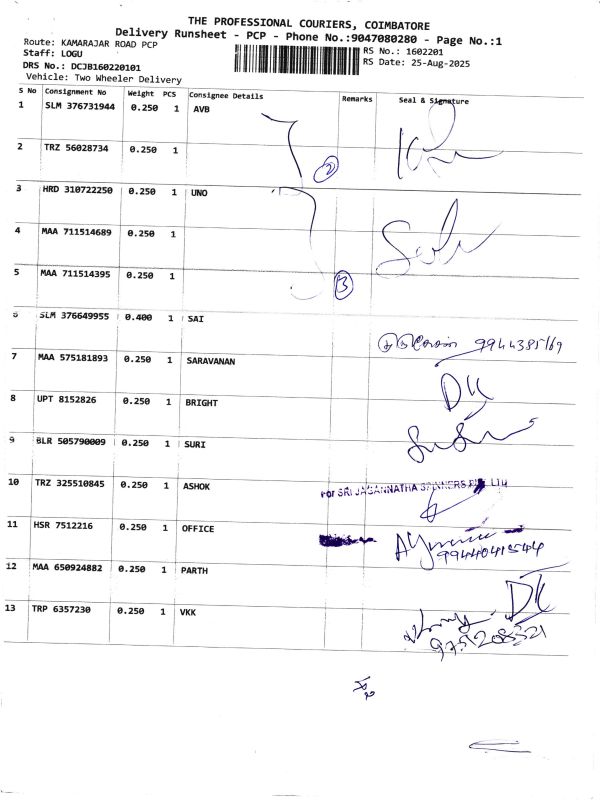 THE PROFESSIONAL COURIERS, COIMBATORE
Delivery Runsheet - PCP - Phone No.:9047080280 - Page No.:1
Route: KAMARAJAR ROAD PCP
Staff: LOGU
DRS No.: DCJB160220101
Vehicle: Two Wheeler Delivery
RS No.: 1602201
RS Date: 25-Aug-2025
S No Consignment No Weight PCS Consignee Details Remarks Seal & Signature
1 SLM 376731944 0.250 1 AVB
2 TRZ 56028734 0.250 1
2
3 HRD 310722250 0.250 1 UNO
4 MAA 711514689 0.250 1
5 MAA 711514395 0.250 1
3
6 SLM 376649955 0.400 1 SAI
9944385169
7 MAA 575181893 0.250 1 SARAVANAN
8 UPT 8152826 0.250 1 BRIGHT
DK
9 BLR 505790009 0.250 1 SURI
10 TRZ 325510845 0.250 1 ASHOK
For SRI JAGANNATHA SPINNERS PVT LTD
11 HSR 7512216 0.250 1 OFFICE
9944041544
12 MAA 650924882 0.250 1 PARTH
DK
13 TRP 6357230 0.250 1 VKK